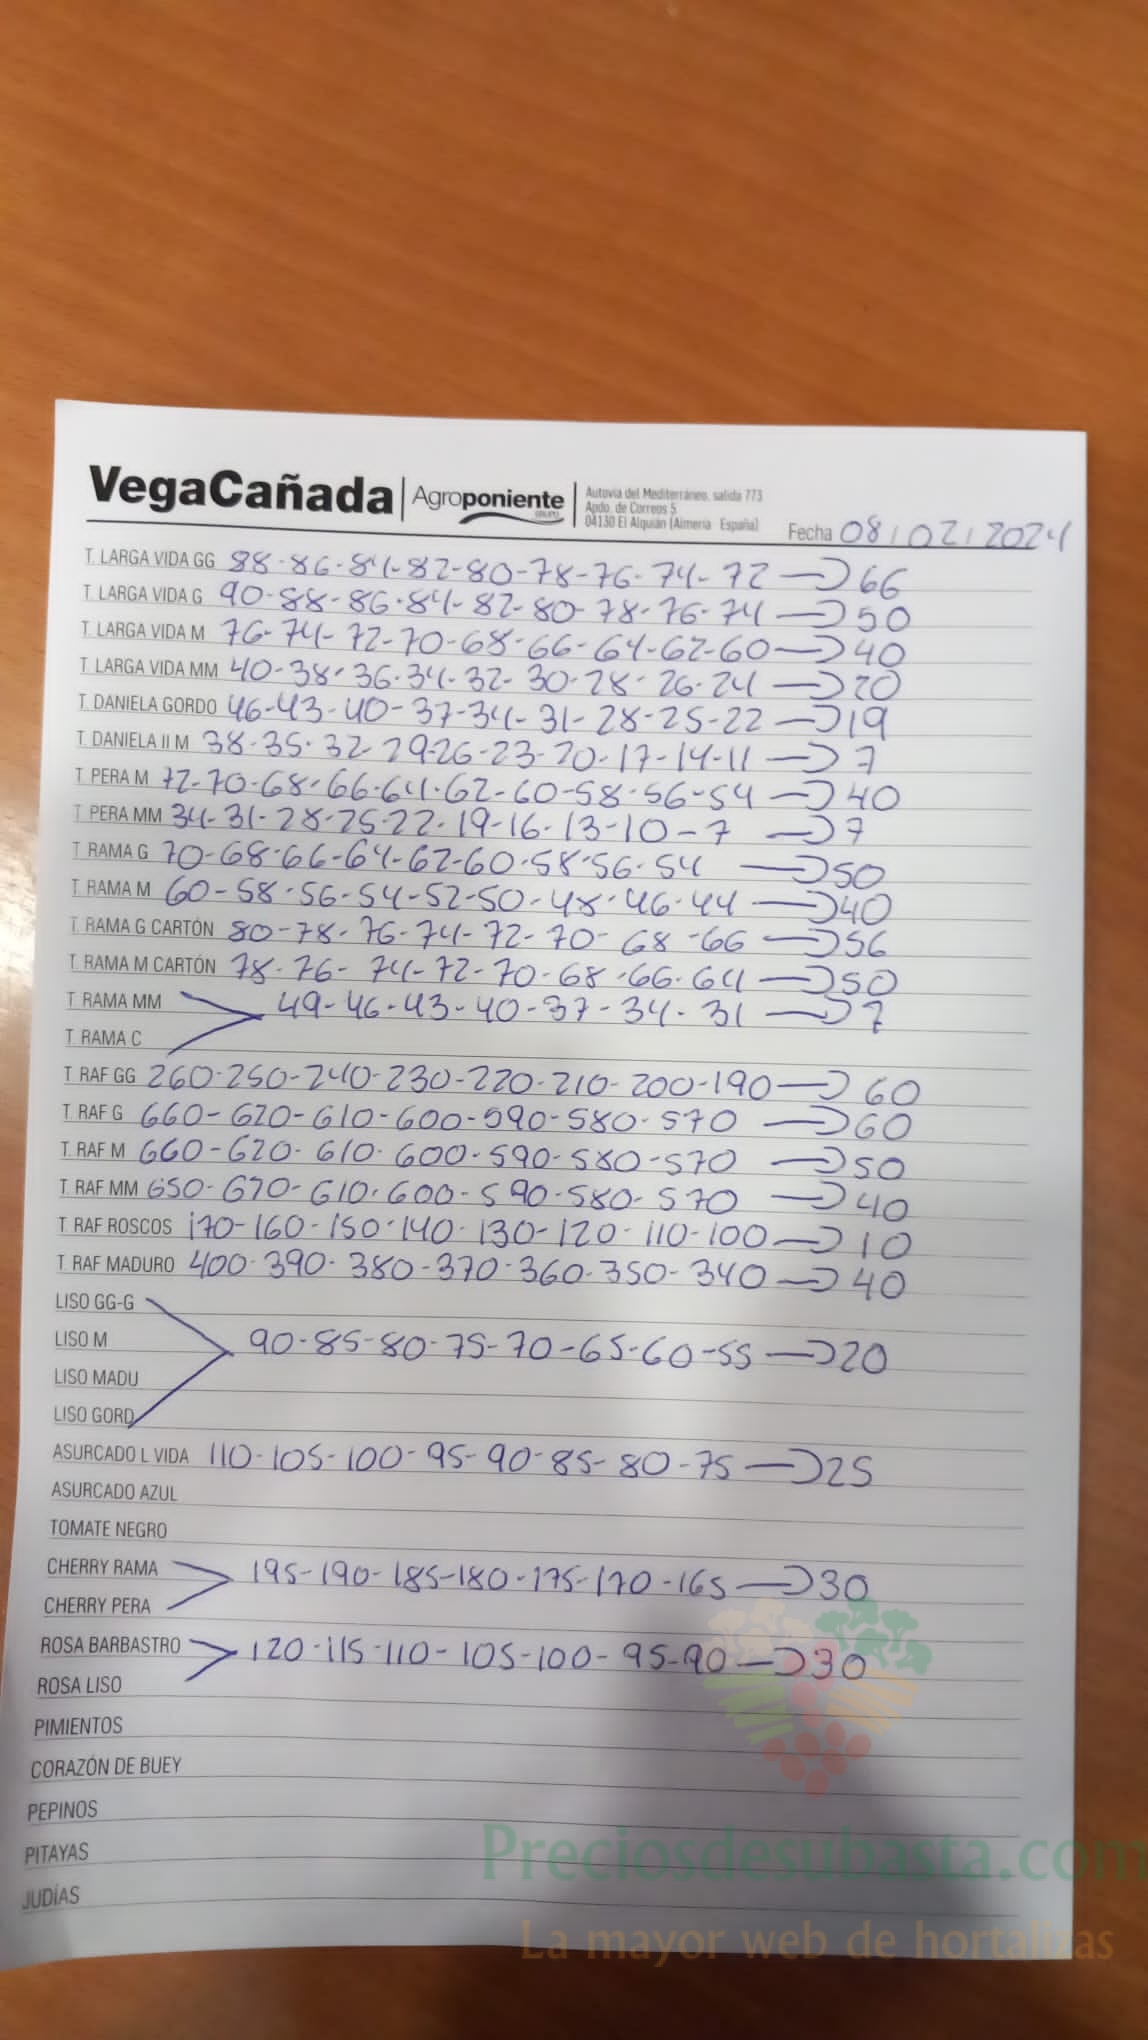 VegaCañada | Agroponiente GRUPO
Autovía del Mediterráneo, salida 773
Apdo. de Correos 5
04130 El Alquián (Almería España)
Fecha 08/02/2024
T. LARGA VIDA GG 88-86-84-82-80-78-76-74-72 → 66
T. LARGA VIDA G 90-88-86-84-82-80-78-76-74 → 50
T. LARGA VIDA M 76-74-72-70-68-66-64-62-60 → 40
T. LARGA VIDA MM 40-38-36-34-32-30-28-26-24 → 20
T. DANIELA GORDO 46-43-40-37-34-31-28-25-22 → 19
T. DANIELA II M 38-35-32-29-26-23-20-17-14-11 → 7
T. PERA M 72-70-68-66-64-62-60-58-56-54 → 40
T. PERA MM 34-31-28-25-22-19-16-13-10-7 → 7
T. RAMA G 70-68-66-64-62-60-58-56-54 → 50
T. RAMA M 60-58-56-54-52-50-48-46-44 → 40
T. RAMA G CARTÓN 80-78-76-74-72-70-68-66 → 56
T. RAMA M CARTÓN 78-76-74-72-70-68-66-64 → 50
T. RAMA MM 49-46-43-40-37-34-31 → 7
T. RAMA C
T. RAF GG 260-250-240-230-220-210-200-190 → 60
T. RAF G 660-620-610-600-590-580-570 → 60
T. RAF M 660-620-610-600-590-580-570 → 50
T. RAF MM 650-620-610-600-590-580-570 → 40
T. RAF ROSCOS 170-160-150-140-130-120-110-100 → 10
T. RAF MADURO 400-390-380-370-360-350-340 → 40
LISO GG-G
LISO M 90-85-80-75-70-65-60-55 → 20
LISO MADU
LISO GORD
ASURCADO L VIDA 110-105-100-95-90-85-80-75 → 25
ASURCADO AZUL
TOMATE NEGRO
CHERRY RAMA 195-190-185-180-175-170-165 → 30
CHERRY PERA
ROSA BARBASTRO 120-115-110-105-100-95-90 → 30
ROSA LISO
PIMIENTOS
CORAZÓN DE BUEY
PEPINOS
PITAYAS
JUDÍAS
Preciosdesubasta.com
La mayor web de hortalizas